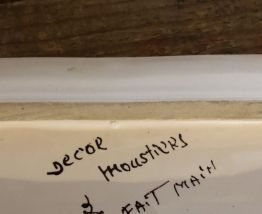 DECOR
MOUSTIERS
FAIT MAIN